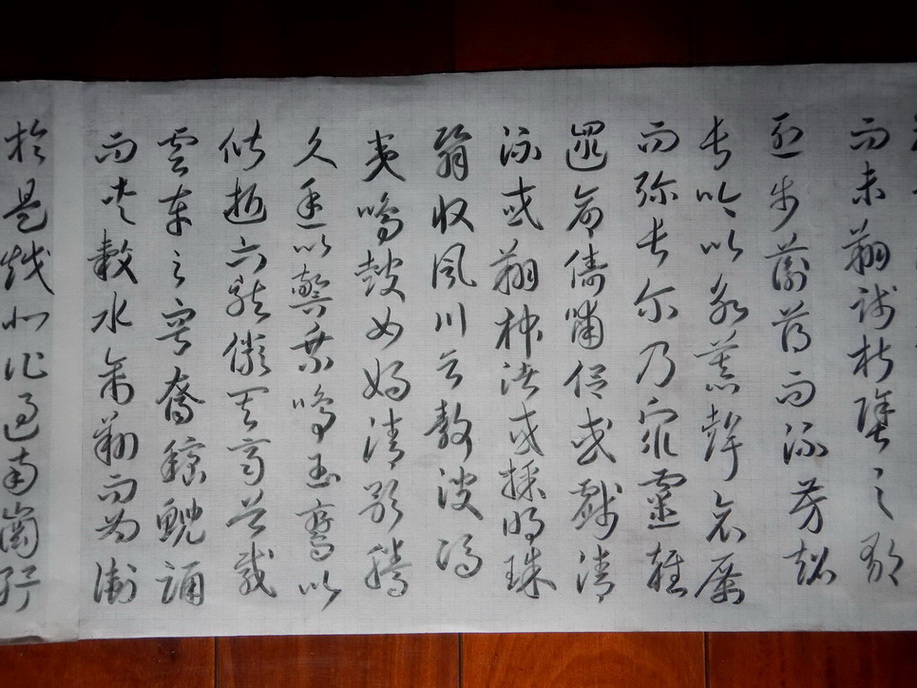 而未翔踐椒塗之郁
烈步蘅薄而流芳超
長吟以永慕聲哀厲
而弥長尔乃眾靈雜
遝命儔嘯侶或戲清
流或翔神渚或採明珠
翳收風川后靜波馮
夷鳴鼓女媧清歌騰
文魚以警乘鳴玉鸞以
偕逝六龍儼其齊首載
雲車之容裔鯨鯢踊
而夾轂水禽翔而為衛
於是越北沚過南岡紆